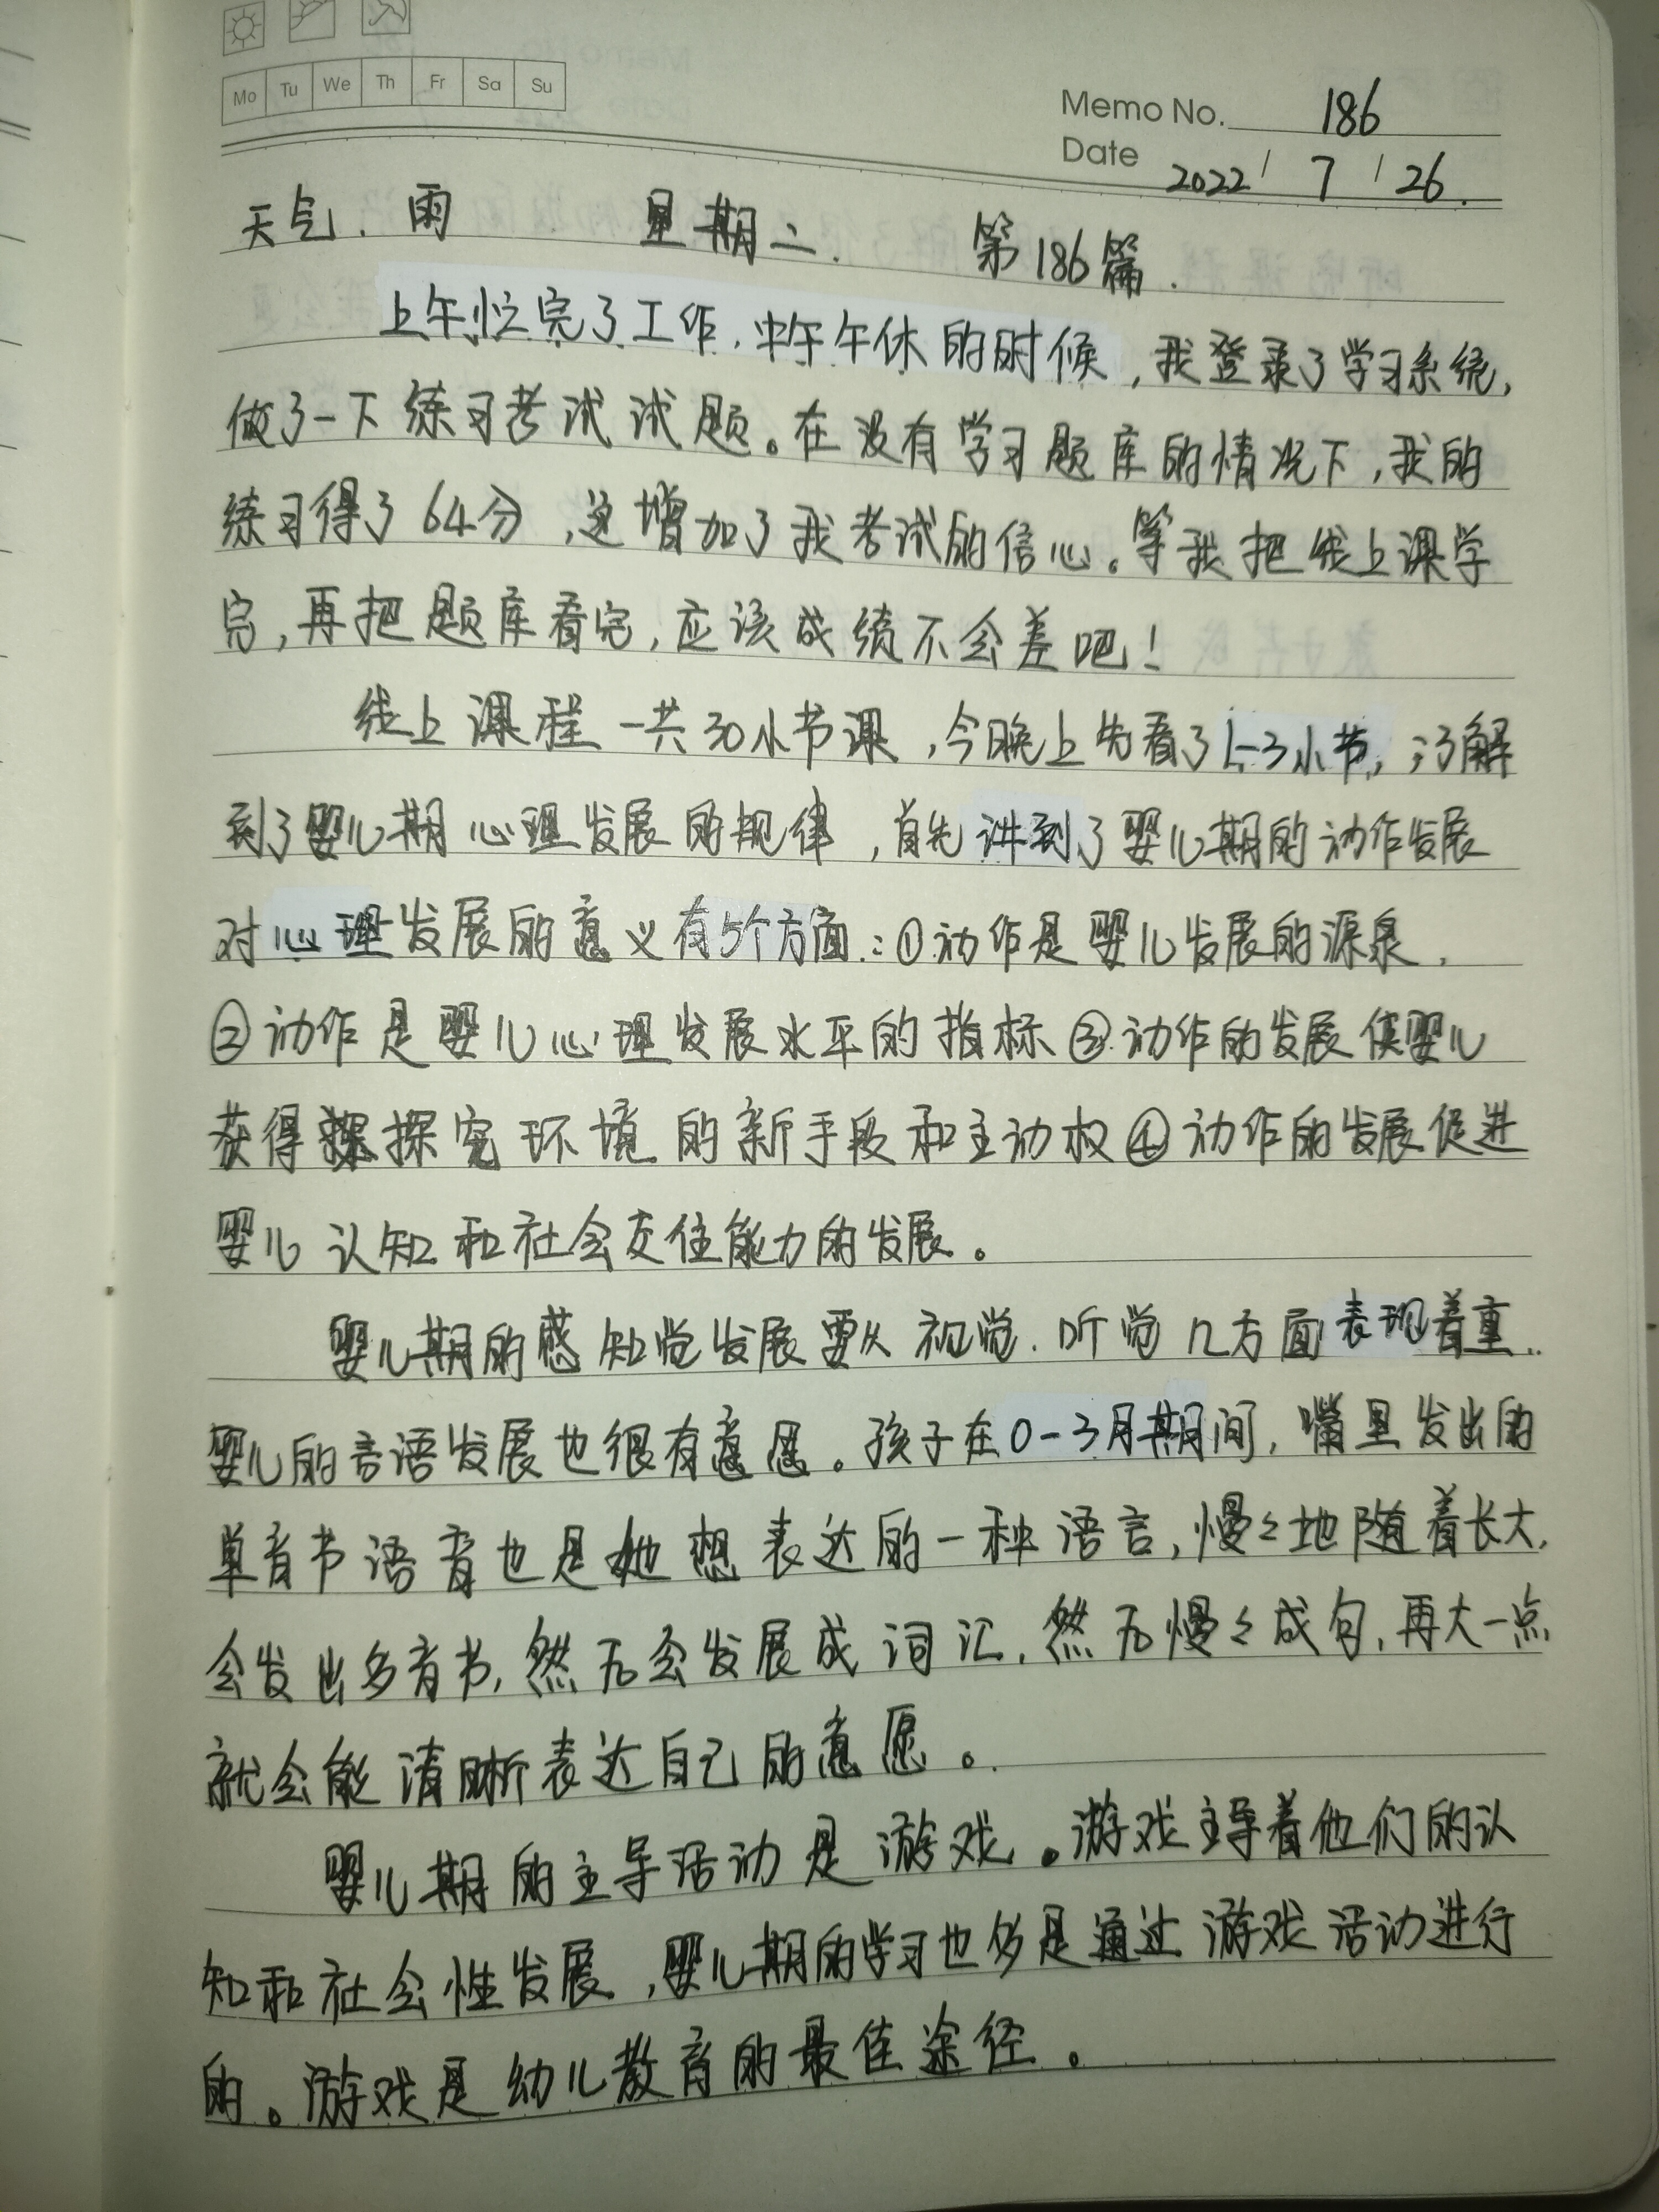 Mo Tu We Th Fr Sa Su
Memo No. 186
Date 2022 / 7 / 26.
天气.雨 星期二. 第186篇.
上午忙完了工作,中午午休的时候,我登录了学习系统,
做了一下练习考试试题。在没有学习题库的情况下,我的
练习得了64分,这增加了我考试的信心。等我把线上课学
完,再把题库看完,应该成绩不会差吧!
线上课程一共30小节课,今晚上先看了1-3小节,了解
到了婴儿期心理发展的规律,首先讲到了婴儿期的动作发展
对心理发展的意义有5个方面:①动作是婴儿发展的源泉.
②动作是婴儿心理发展水平的指标③动作的发展使婴儿
获得探究环境的新手段和主动权④动作的发展促进
婴儿认知和社会交往能力的发展。
婴儿期的感知觉发展要从视觉.听觉几方面表现着重.
婴儿的言语发展也很有意愿。孩子在0-3月期间,嘴里发出的
单音节语音也是她想表达的一种语言,慢々地随着长大,
会发出多音节,然后会发展成词汇,然后慢々成句,再大一点
就会能清晰表达自己的意愿。
婴儿期的主导活动是游戏。游戏主导着他们的认
知和社会性发展,婴儿期的学习也多是通过游戏活动进行
的。游戏是幼儿教育的最佳途径。